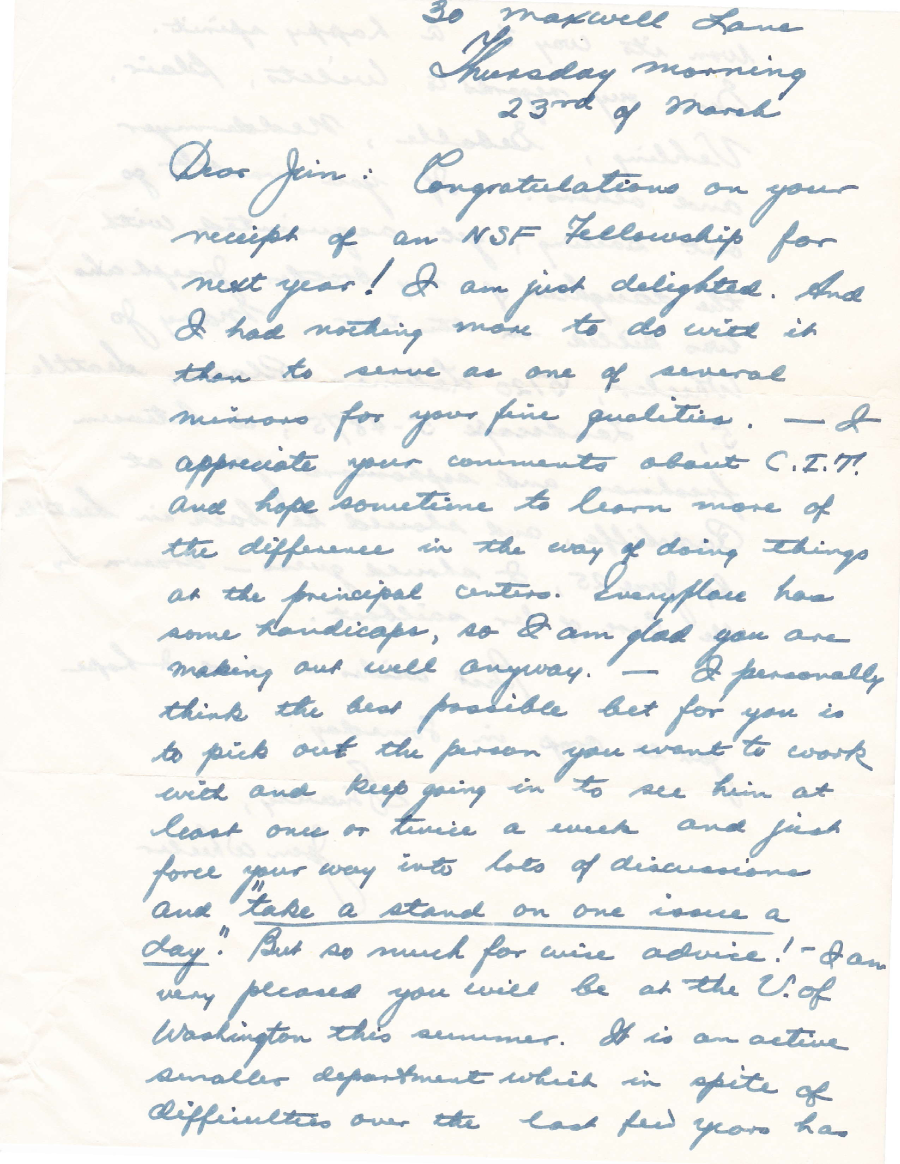 30 Maxwell Lane
Thursday morning
23rd of March
Dear Jim: Congratulations on your
receipt of an NSF Fellowship for
next year! I am just delighted. And
I had nothing more to do with it
than to serve as one of several
mirrors for your fine qualities. — I
appreciate your comments about C.I.T.
and hope sometime to learn more of
the difference in the way of doing things
at the principal centers. Everyplace has
some handicaps, so I am glad you are
making out well anyway. — I personally
think the best possible bet for you is
to pick out the person you want to work
with and keep going in to see him at
least once or twice a week and just
force your way into lots of discussions
and "take a stand on one issue a
day". But so much for wise advice! - I am
very pleased you will be at the U. of
Washington this summer. It is an active
smaller department which in spite of
difficulties over the last few years has